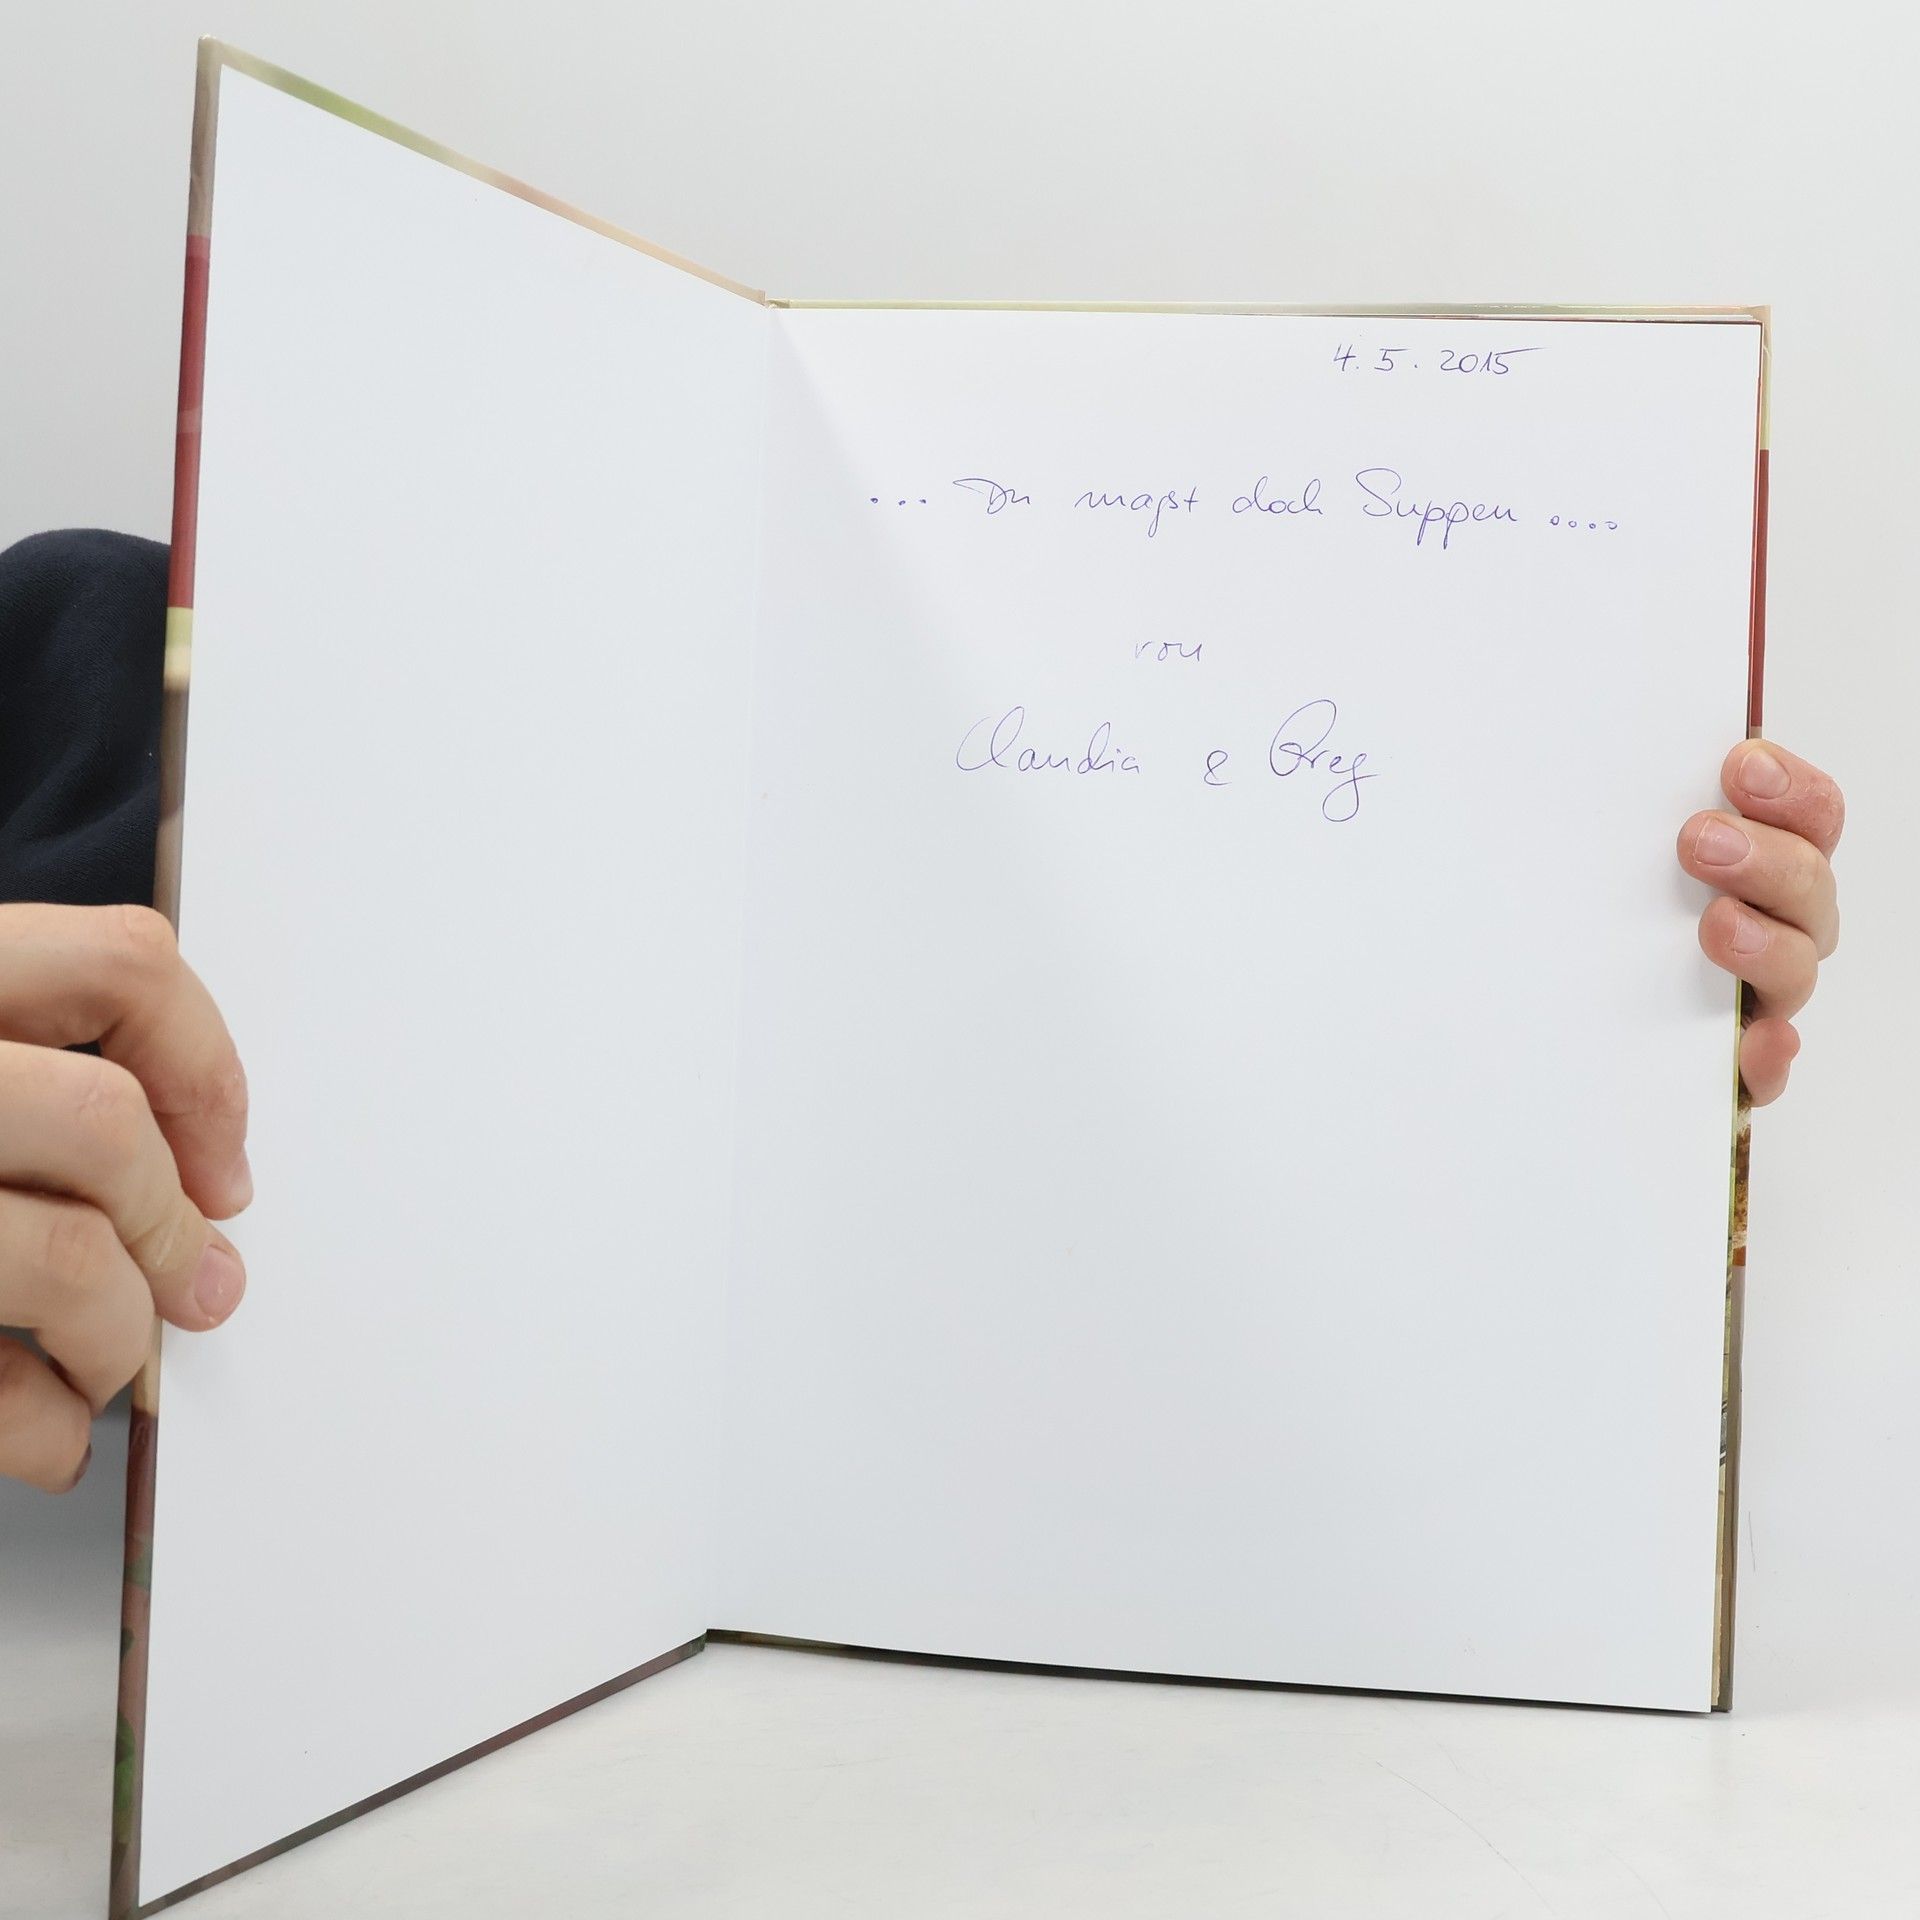 4. 5. 2015
... Du magst doch Suppen ....
von
Claudia & Greg